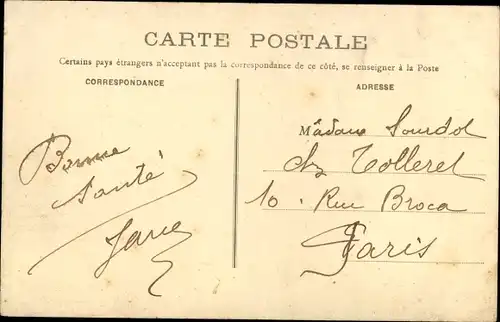 CARTE POSTALE
Certains pays étrangers n'acceptant pas la correspondance de ce côté, se renseigner à la Poste
CORRESPONDANCE
Bonne
Santé
ADRESSE
Mâdame Sourdot
Chez Tolleret
10. Rue Broca
Paris